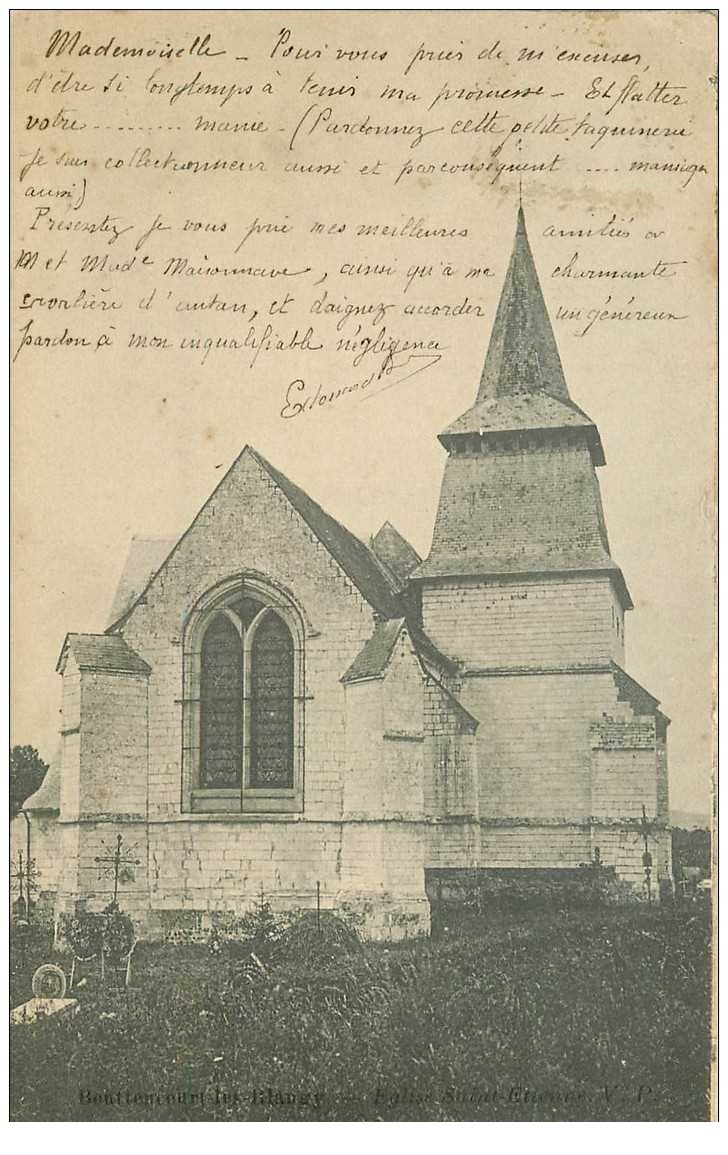 Mademoiselle - Pour vous prier de m'excuser,
d'être si longtemps à tenir ma promesse - Et flatter
votre ......... manie - (Pardonnez cette petite taquinerie
Je suis collectionneur aussi et parconséquent .... maniaque
aussi)
Présentez je vous prie mes meilleures amitiés à
M et Made Maisonnave, ainsi qu'à ma charmante
cavalière d'antan, et daignez accorder un généreux
pardon à mon inqualifiable négligence
Bouttencourt-les-Blangy — Eglise Saint-Etienne. V. P.